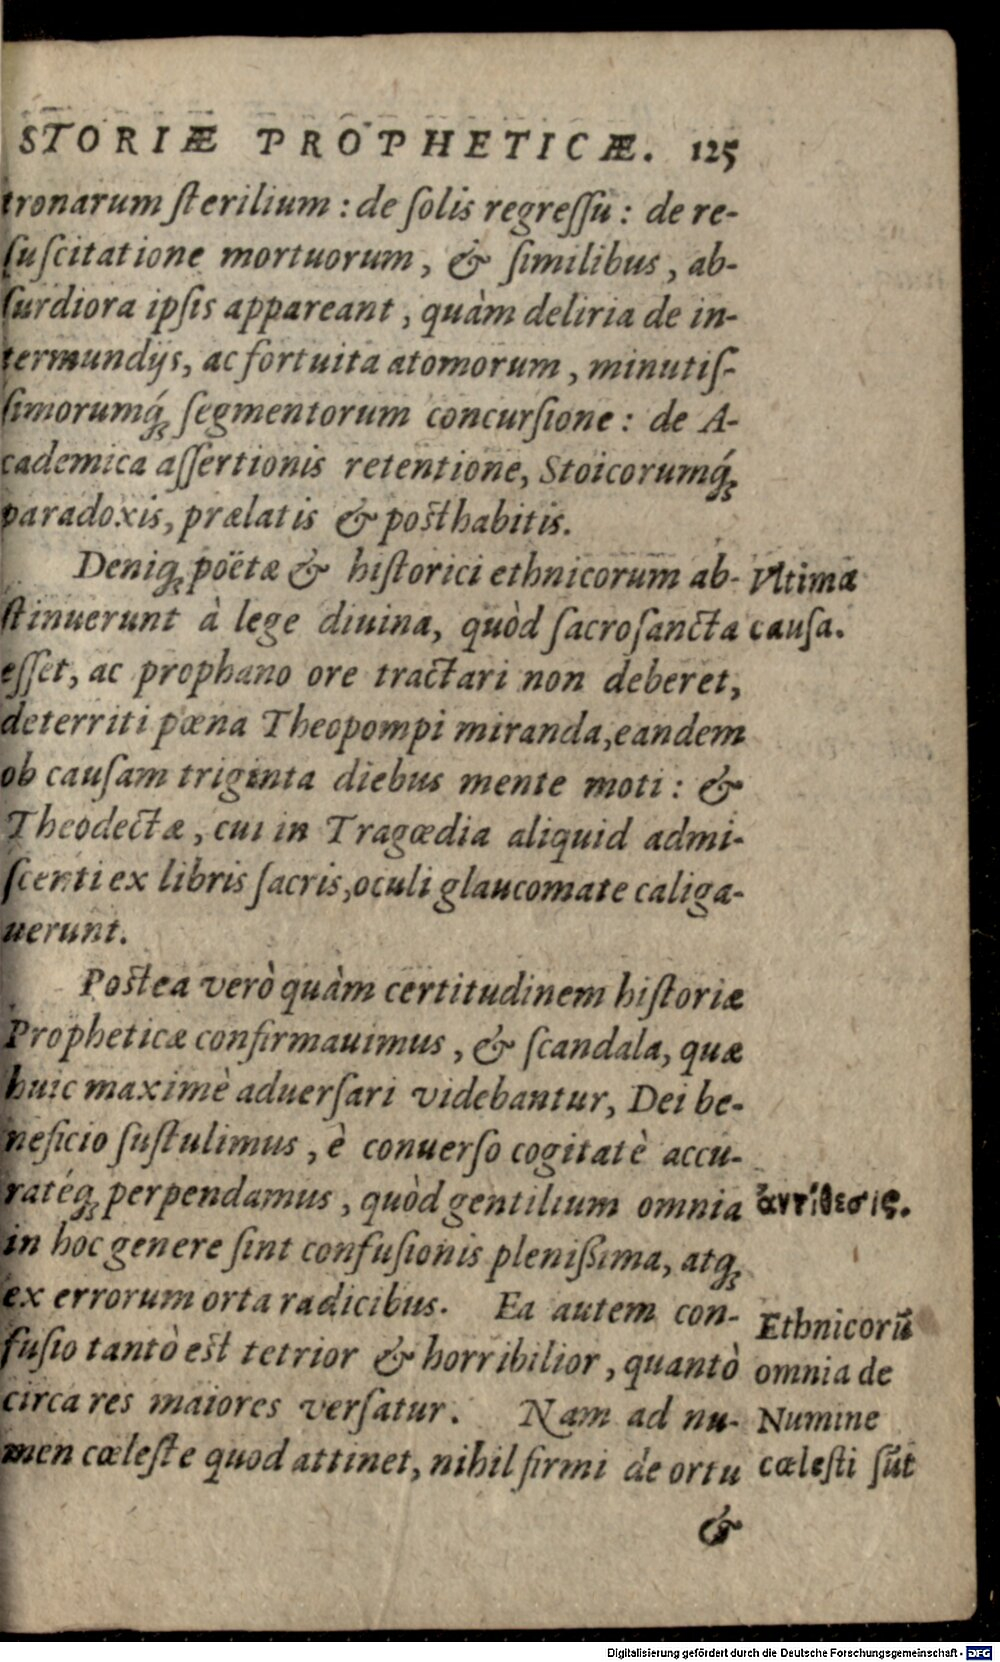 STORIÆ PROPHETICÆ. 125
tronarum ſterilium : de ſolis regreſſu : de re-
ſuſcitatione mortuorum, & ſimilibus, ab-
ſurdiora ipſis appareant, quàm deliria de in-
termundijs, ac fortuita atomorum, minutiſ-
ſimorumq́; ſegmentorum concurſione: de A-
cademica aſſertionis retentione, Stoicorumq́;
paradoxis, prælatis & posthabitis.
Deniq; poëtæ & hiſtorici ethnicorum ab-
ſtinuerunt à lege diuina, quòd ſacroſancta
eſſet, ac prophano ore tractari non deberet,
deterriti pœna Theopompi miranda, eandem
ob cauſam triginta diebus mente moti: &
Theodectæ, cui in Tragœdia aliquid admi-
ſcenti ex libris ſacris, oculi glaucomate caliga-
uerunt.
Vltima
cauſa.
Postea verò quàm certitudinem hiſtoriæ
Propheticæ confirmauimus, & ſcandala, quæ
huic maximè aduerſari videbantur, Dei be-
neficio ſuſtulimus, è conuerſo cogitatè accu-
ratéq; perpendamus, quòd gentilium omnia
in hoc genere ſint confuſionis pleniſſima, atq;
ex errorum orta radicibus. Ea autem con-
fuſio tantò est tetrior & horribilior, quantò
circa res maiores verſatur. Nam ad nu-
men cœleſte quod attinet, nihil firmi de ortu
ἀντίθεσις.
Ethnicorũ
omnia de
Numine
cœleſti sũt
&
Digitalisierung gefördert durch die Deutsche Forschungsgemeinschaft - DFG